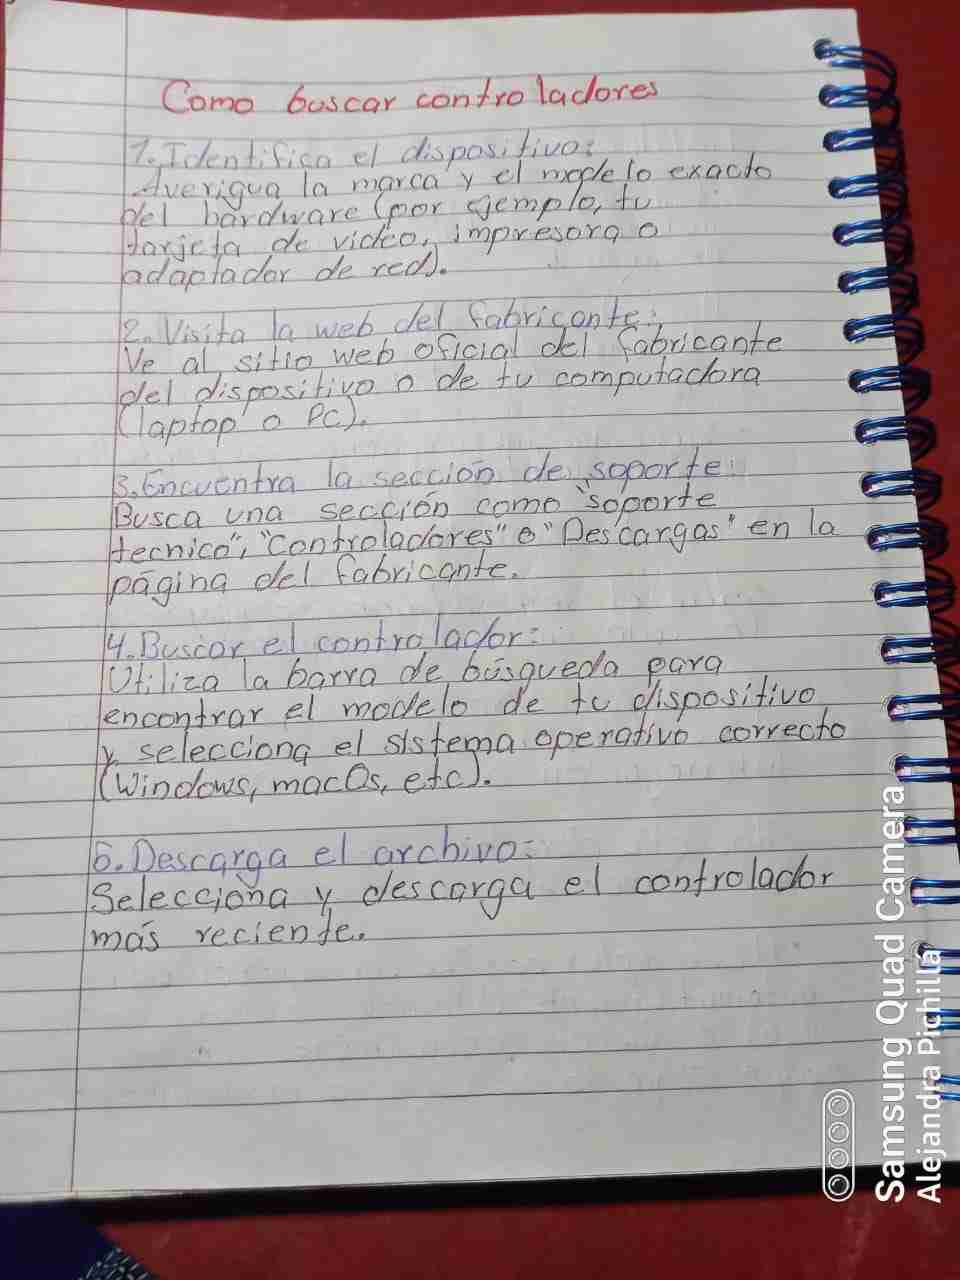 Como buscar controladores
1. Identifica el dispositivo:
Averigua la marca y el modelo exacto
del hardware (por ejemplo, tu
tarjeta de video, impresora o
adaptador de red).
2. Visita la web del fabricante:
Ve al sitio web oficial del fabricante
del dispositivo o de tu computadora
(laptop o PC).
3. Encuentra la sección de soporte:
Busca una sección como "soporte
tecnico", "Controladores" o "Descargas" en la
página del fabricante.
4. Buscar el controlador:
Utiliza la barra de búsqueda para
encontrar el modelo de tu dispositivo
y selecciona el sistema operativo correcto
(Windows, macOs, etc).
5. Descarga el archivo:
Selecciona y descarga el controlador
más reciente.
Samsung Quad Camera
Alejandra Pichillá